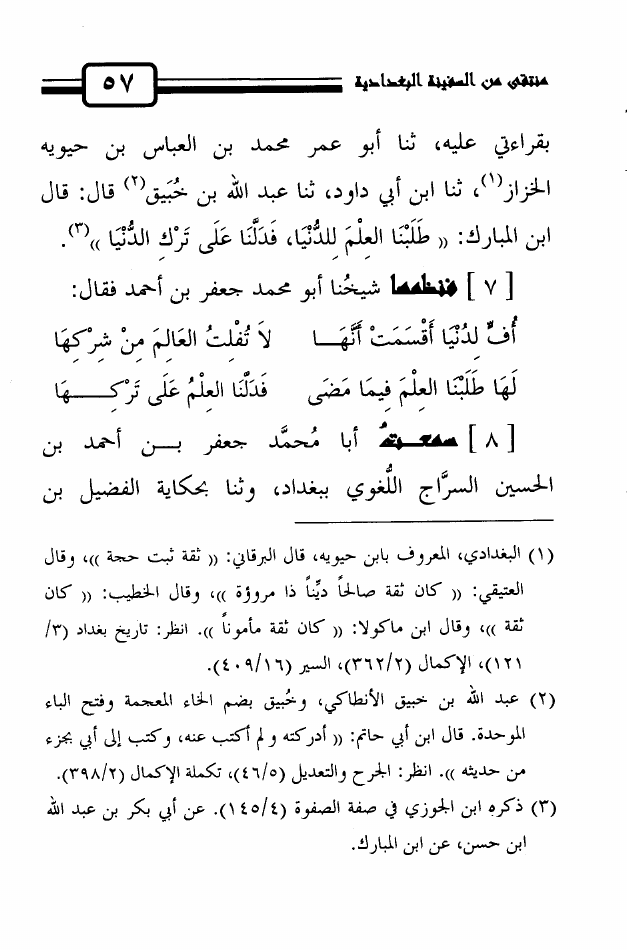 منتقى من السفينة البغدادية ٥٧
بقراءتي عليه، ثنا أبو عمر محمد بن العباس بن حيويه
الخزاز(١)، ثنا ابن أبي داود، ثنا عبد الله بن خُبَيق(٢) قال: قال
ابن المبارك: (( طَلَبْنَا العِلْمَ لِلدُّنْيَا، فَدَلَّنَا عَلَى تَرْكِ الدُّنْيَا ))(٣).
[ ٧ ] فنظمها شيخُنا أبو محمد جعفر بن أحمد فقال:
أُفٍّ لِدُنْيَا أَقْسَمَتْ أَنَّهَـــا لاَ تُفْلِتُ العَالِمَ مِنْ شِرْكِهَا
لَهَا طَلَبْنَا العِلْمَ فِيمَا مَضَى فَدَلَّنَا العِلْمُ عَلَى تَرْكِـــــهَا
[ ٨ ] سمعـــتُ أبا مُحمَّد جعفر بـــن أحمد بن
الحسين السرَّاج اللُّغوي ببغداد، وثنا بحكاية الفضيل بن
(١) البغدادي، المعروف بابن حيويه، قال البرقاني: (( ثقة ثبت حجة ))، وقال
العتيقي: (( كان ثقة صالحاً ديِّناً ذا مروؤة ))، وقال الخطيب: (( كان
ثقة ))، وقال ابن ماكولا: (( كان ثقة مأموناً )). انظر: تاريخ بغداد (٣/
١٢١)، الإكمال (٣٦٢/٢)، السير (٤٠٩/١٦).
(٢) عبد الله بن خبيق الأنطاكي، وخُبيق بضم الخاء المعجمة وفتح الباء
الموحدة. قال ابن أبي حاتم: (( أدركته و لم أكتب عنه، وكتب إلى أبي بجزء
من حديثه )). انظر: الجرح والتعديل (٤٦/٥)، تكملة الإكمال (٣٩٨/٢).
(٣) ذكره ابن الجوزي في صفة الصفوة (١٤٥/٤). عن أبي بكر بن عبد الله
ابن حسن، عن ابن المبارك.